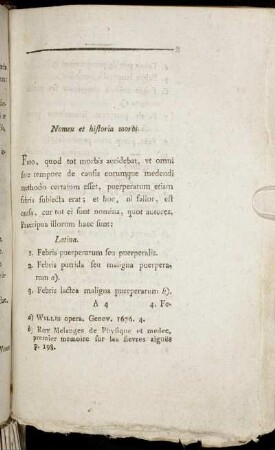 Nomen et hiſtoria morbi.
Fato, quod tot morbis accidebat, vt omni
fere tempore de cauſis eorumque medendi
methodo certatum eſſet, puerperarum etiam
febris ſubiecta erat; et hoc, ni fallor, eſt
cauſa, cur tot ei ſunt nomina, quot autores.
Praecipua illorum haec ſunt:
Latina.
1. Febris puerperarum ſeu puerperalis.
2. Febris putrida ſeu maligna puerpera-
rum a).
3. Febris lactea maligna puerperarum b).
A 4 4. Fe-
a) WILLIS opera. Genev. 1676. 4.
b) ROY Melanges de Phyſique et medec.
premier memoire ſur les fievres aiguës
p. 198.